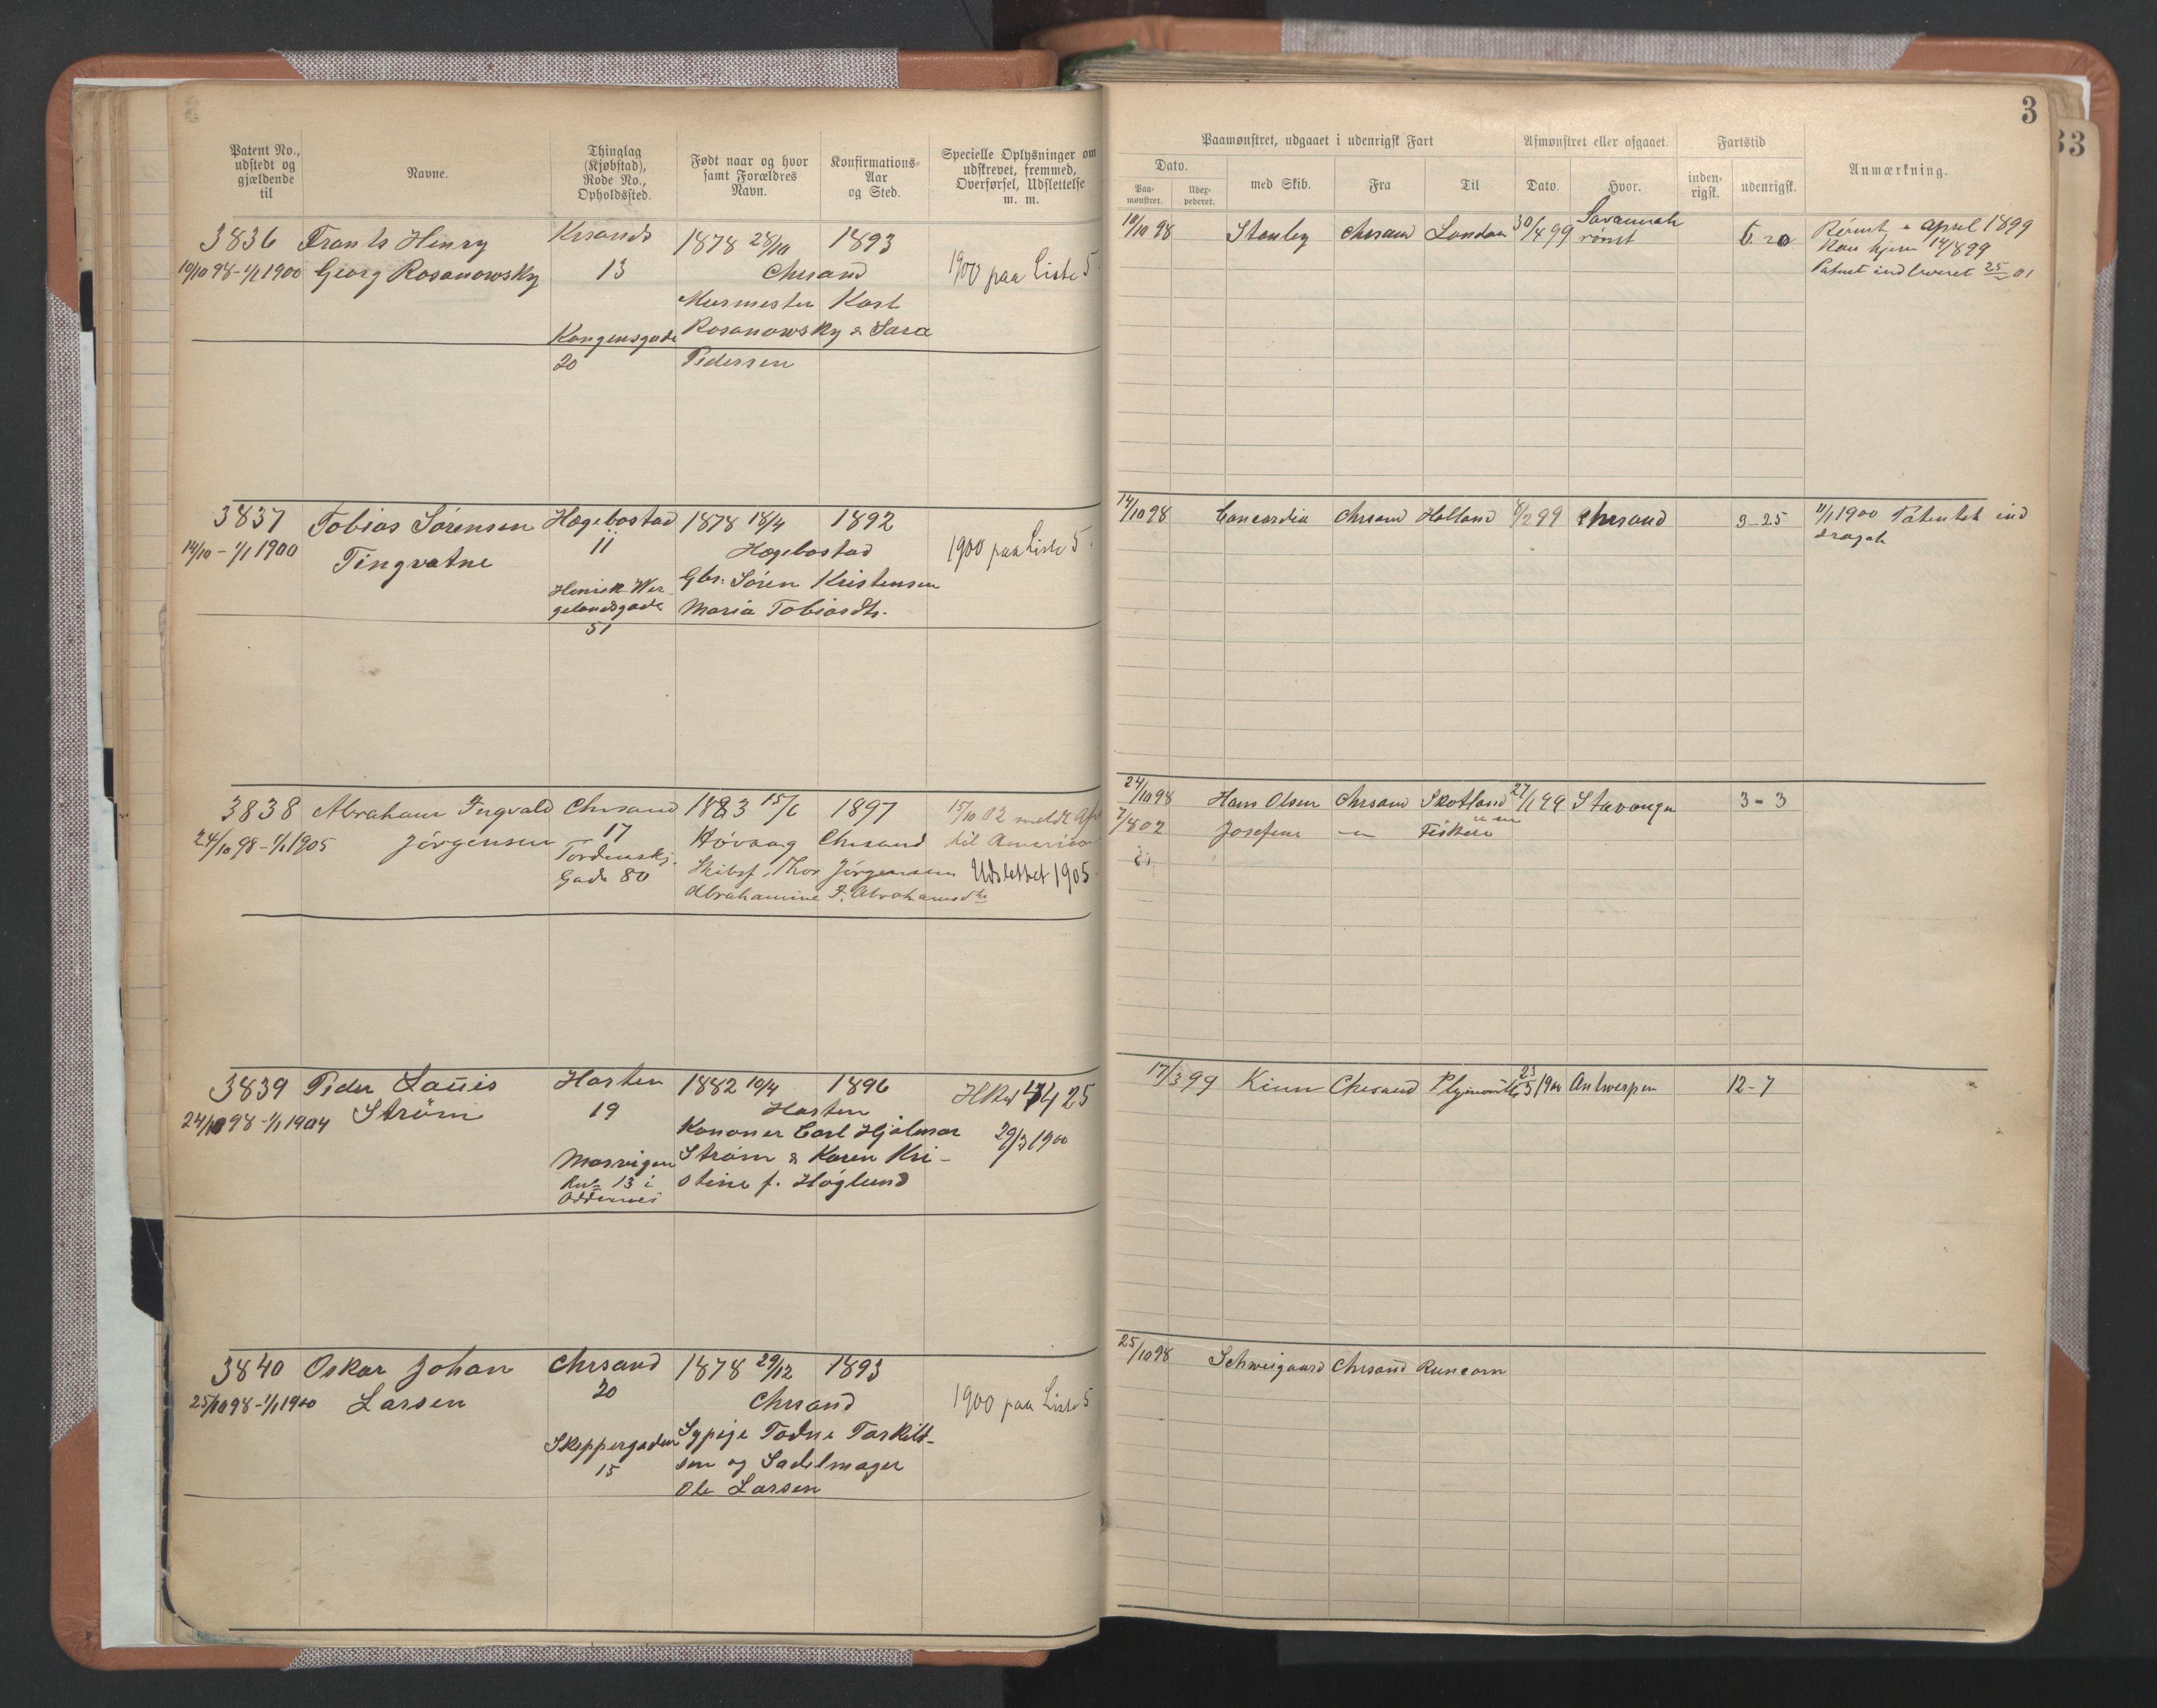 3
33
Patent No., udstedt og gjældende til
Navne.
Thinglag (Kjøbstad), Rode No., Opholdssted.
Født naar og hvor samt Forældres Navn.
Konfirmations-Aar og Sted.
Specielle Oplysninger om udskrevet, fremmed, Overførsel, Udslettelse m. m.
Paamønstret, udgaaet i udenrigsk Fart
Dato.
Paa-mønstret.
Udex-pederet.
med Skib.
Fra
Til
Afmønstret eller afgaaet.
Dato.
Hvor.
Fartstid
inden-rigsk.
udenrigsk.
Anmærkning.
3836
10/10 98 - 1/1 1900
Frants Henry
Georg Rosanowsky
Krsands
13
Kongensgade
20
1878 28/10 1893
Chrsand
Murmester Karl
Rosanowsky & Sara
Pedersen
1900 paa Liste 5
10/10 98 Stanley Chrsand London 30/4 99 Savannah
rømt
6 20
April 1899
hjem 14/8 99
Patent indleveret
3837
14/10 - 1/1 1900
Tobias Sörensen
Tingvatne
Hægebostad
11
Henrik Wer-
gelandsgade
51
1878 18/4 1892
Hægebostad
Gbr. Sören Kristensen
Maria Tobiasdtr.
1900 paa Liste 5
14/10 98 Concordia Chrsand Holland 8/2 99 Chrsand
3-25
1/1 1900 Patentet ind
dragt
3838
24/10 98 - 1/1 1905
Abraham Ingvald
Jörgensen
Chrsand
17
Tordenskj.
Gade 80
1883 15/6 1897
Høvaag Chrsand
Skibsf. Thor Jörgensen
Abrahamine F. Abrahamsdtr
15/10 02 meldt
til America
Udslettet 1905
24/10 98 Hans Olsen Chrsand Skotland 27/1 99 Stavanger
3-3
7/8 02 Josefine - " - Fiskeri
3839
24/10 98 - 1/1 1904
Peder Louis
Ström
Hasten
19
Mosvigen
13 i
Oddernes
1882 10/4 1896
Hasten
Kanoner Carl Hjalmar
Ström & Karen Kri-
stine f. Höglund
29/3 1900
17/3 99 Kinn Chrsand Plymouth 23/3 1900 Antwerpen
12-7
3840
25/10 98 - 1/1 1900
Oskar Johan
Larsen
Chrsand
20
Skippergaden
15
1878 29/12 1893
Chrsand
Sypige Todne Torkild-
sen og Sadelmager
Ole Larsen
1900 paa Liste 5
25/10 98 Schweigaard Chrsand Runcorn